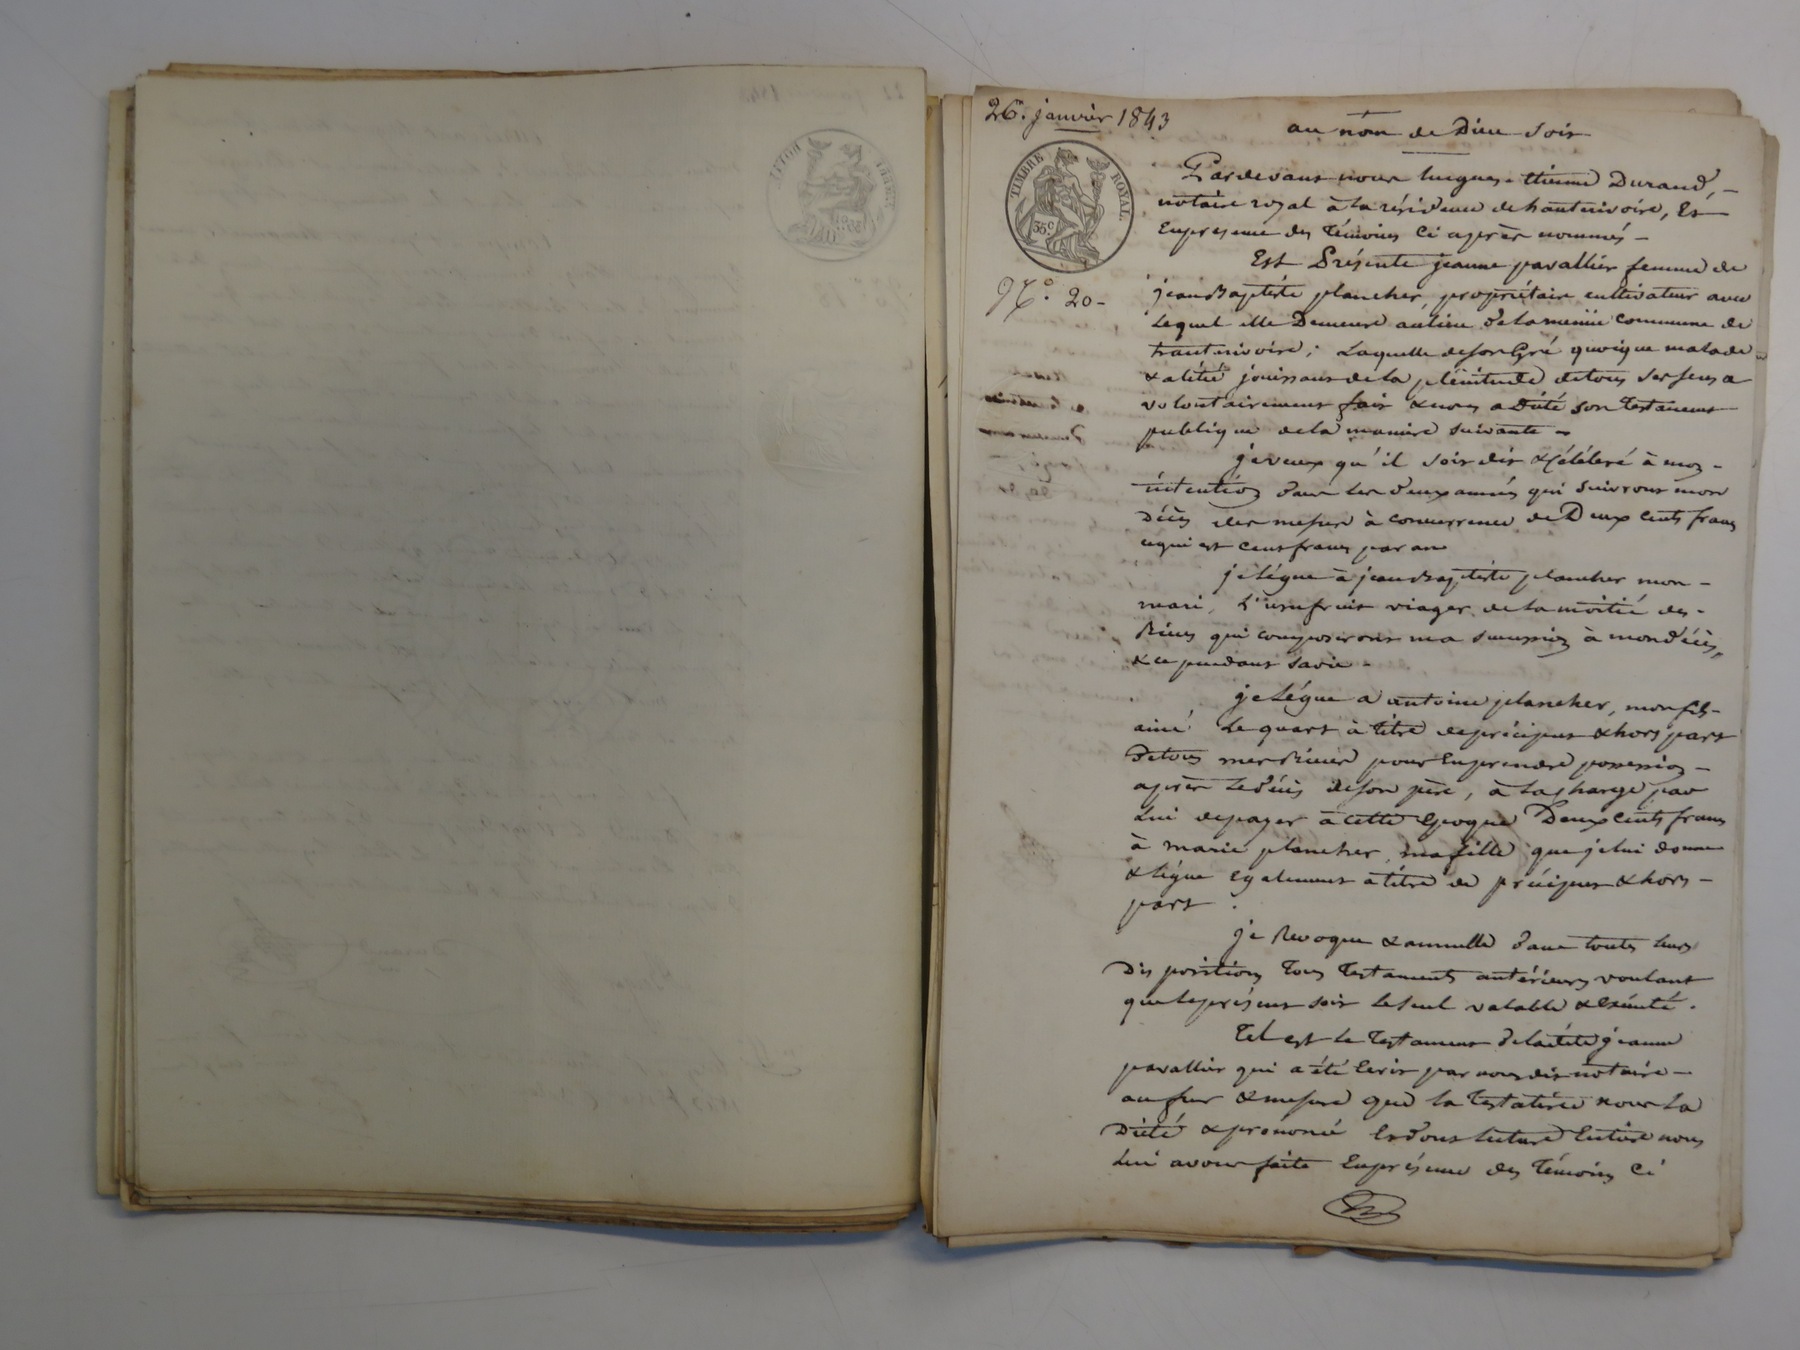 26. janvier 1843
au nom de Dieu soit
TIMBRE ROYAL
35 c
N.º 20-
Pardevant nous hugues-ttienne Durand,-
notaire royal à la résidence de hauterivoire, Et
En presence des Témoins Ci après nommés-
Est Présente jeanne pavallier femme de
jean Baptiste plancher, propriétaire cultivateur avec
lequel elle Demeure au lieu de la commune de
hauterivoire; Laquelle de son Gré quoique malade
& alité jouissant de la plénitude de tous ses sens a
volontairement fait & nous a Dicté son Testament
publique de la maniere suivante-
je veux qu'il soit dit & Célébré à mon-
intention dans les deux années qui suivront mon
Décès des messes à concurrence de Deux Cents francs
ce qui est cent francs par an
je Lègue à jean Baptiste plancher mon-
mari, L'usufruit viager de la moitié des-
Biens qui composeront ma succession à mon décès,
& ce pendant sa vie-
je Lègue a antoine plancher, mon fils-
ainé Le quart à titre de préciput & hors part
De tous mes Biens pour En prendre possession-
après le décès de son père, à la charge par
Lui de payer à cette Epoque Deux Cents francs
à marie plancher, ma fille que je lui donne
& Lègue Egalement à titre de préciput & hors-
part.
je Revoque & annulle dans toutes leurs
Dispositions Tous Testaments antérieurs voulant
que le présent soit le seul valable & Exécuté.
Tel est le Testament de ladite jeanne
pavallier qui a été Ecrit par nous dit notaire-
au fur & mesure que la Testatrice nous la
Dicté & prononcé Et dont lecture Entière nous
Lui avons faite En présence des Témoins Ci